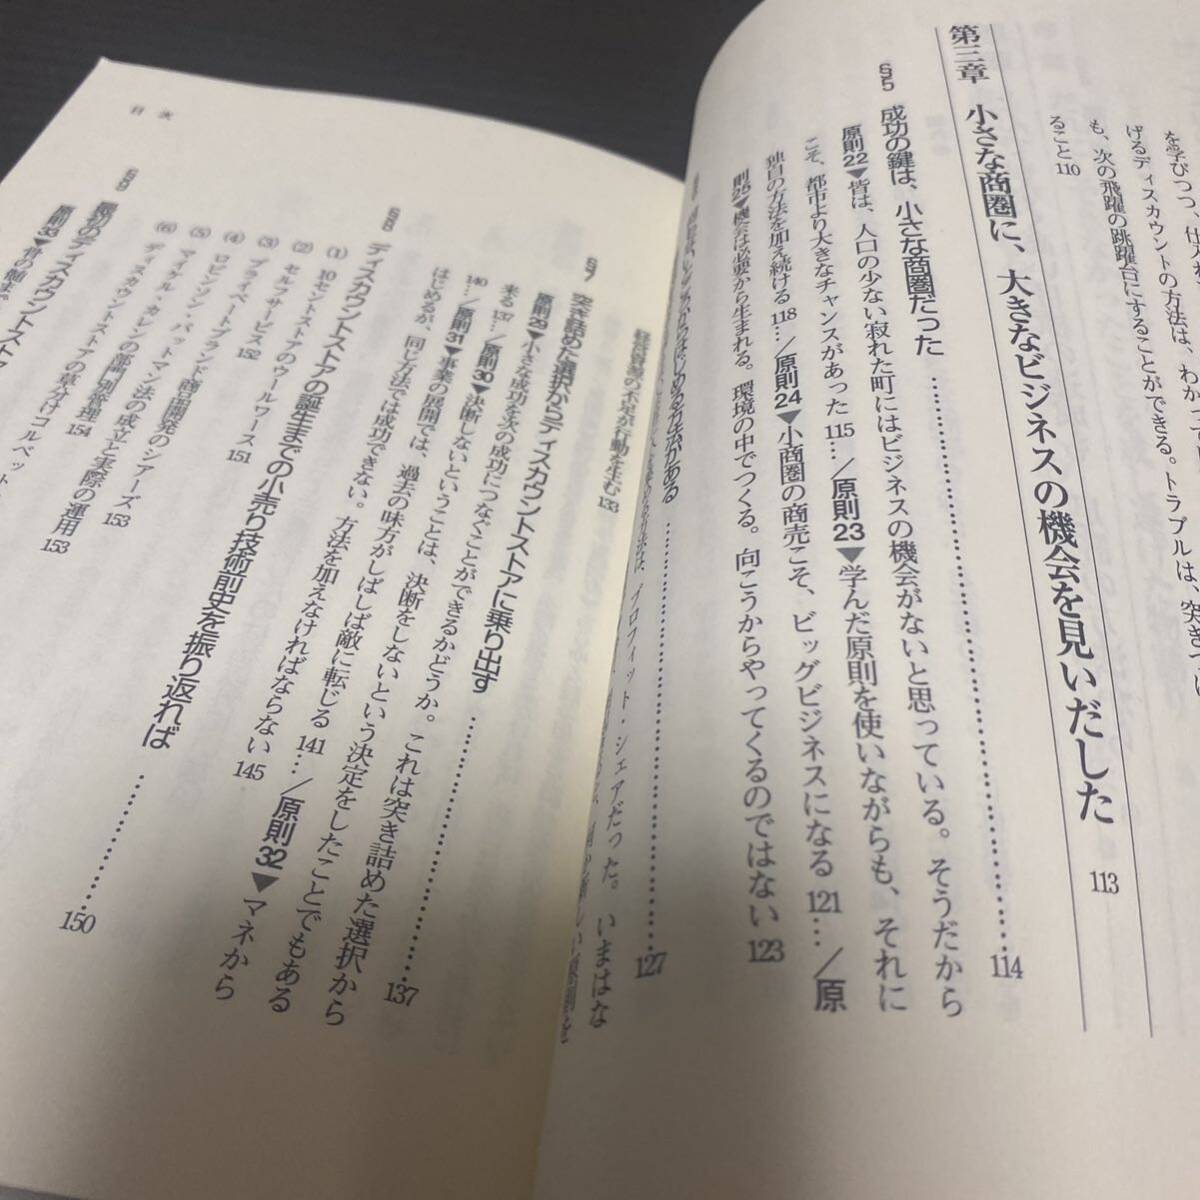 を学びつつ、仕入
げるディスカウントの方法は、わか
も、次の飛躍の跳躍台にすることができる。トラブルは、突き
ること 110
第三章 小さな商圏に、大きなビジネスの機会を見いだした 113
§5 成功の鍵は、小さな商圏だった …… 114
原則22▼皆は、人口の少ない寂れた町にはビジネスの機会がないと思っている。そうだから
こそ、都市より大きなチャンスがあった 115…／原則23▼学んだ原則を使いながらも、それに
独自の方法を加え続ける 118…／原則24▼小商圏の商売こそ、ビッグビジネスになる 121…／原
則25▼機会は必要から生まれる。環境の中でつくる。向こうからやってくるのではない 123
からはじめる方法がある …… 127
は、プロフィット・シェアだった。いまはな
経営資源の不足が行動を生む 133
§7 突き詰めた選択からディスカウントストアに乗り出す …… 137
原則29▼小さな成功を次の成功につなぐことができるかどうか。これは突き詰めた選択から
来る 137…／原則30▼決断しないということは、決断をしないという決定をしたことでもある
140…／原則31▼事業の展開では、過去の味方がしばしば敵に転じる 141…／原則32▼マネから
はじめるが、同じ方法では成功できない。方法を加えなければならない 145
§8 ディスカウントストアの誕生までの小売り技術前史を振り返れば …… 150
(1) 10セントストアのウールワース 151
(2) セルフサービス 152
(3) プライベートブランド商品開発のシアーズ 153
(4) ロビンソン・パットマン法の成立と実際の運用 153
(5) マイケル・カレンの部門別管理 154
(6) ディスカウントストアの草分けコルベット
§9 最初のディスカウントストア
原則33▼昔の
目次